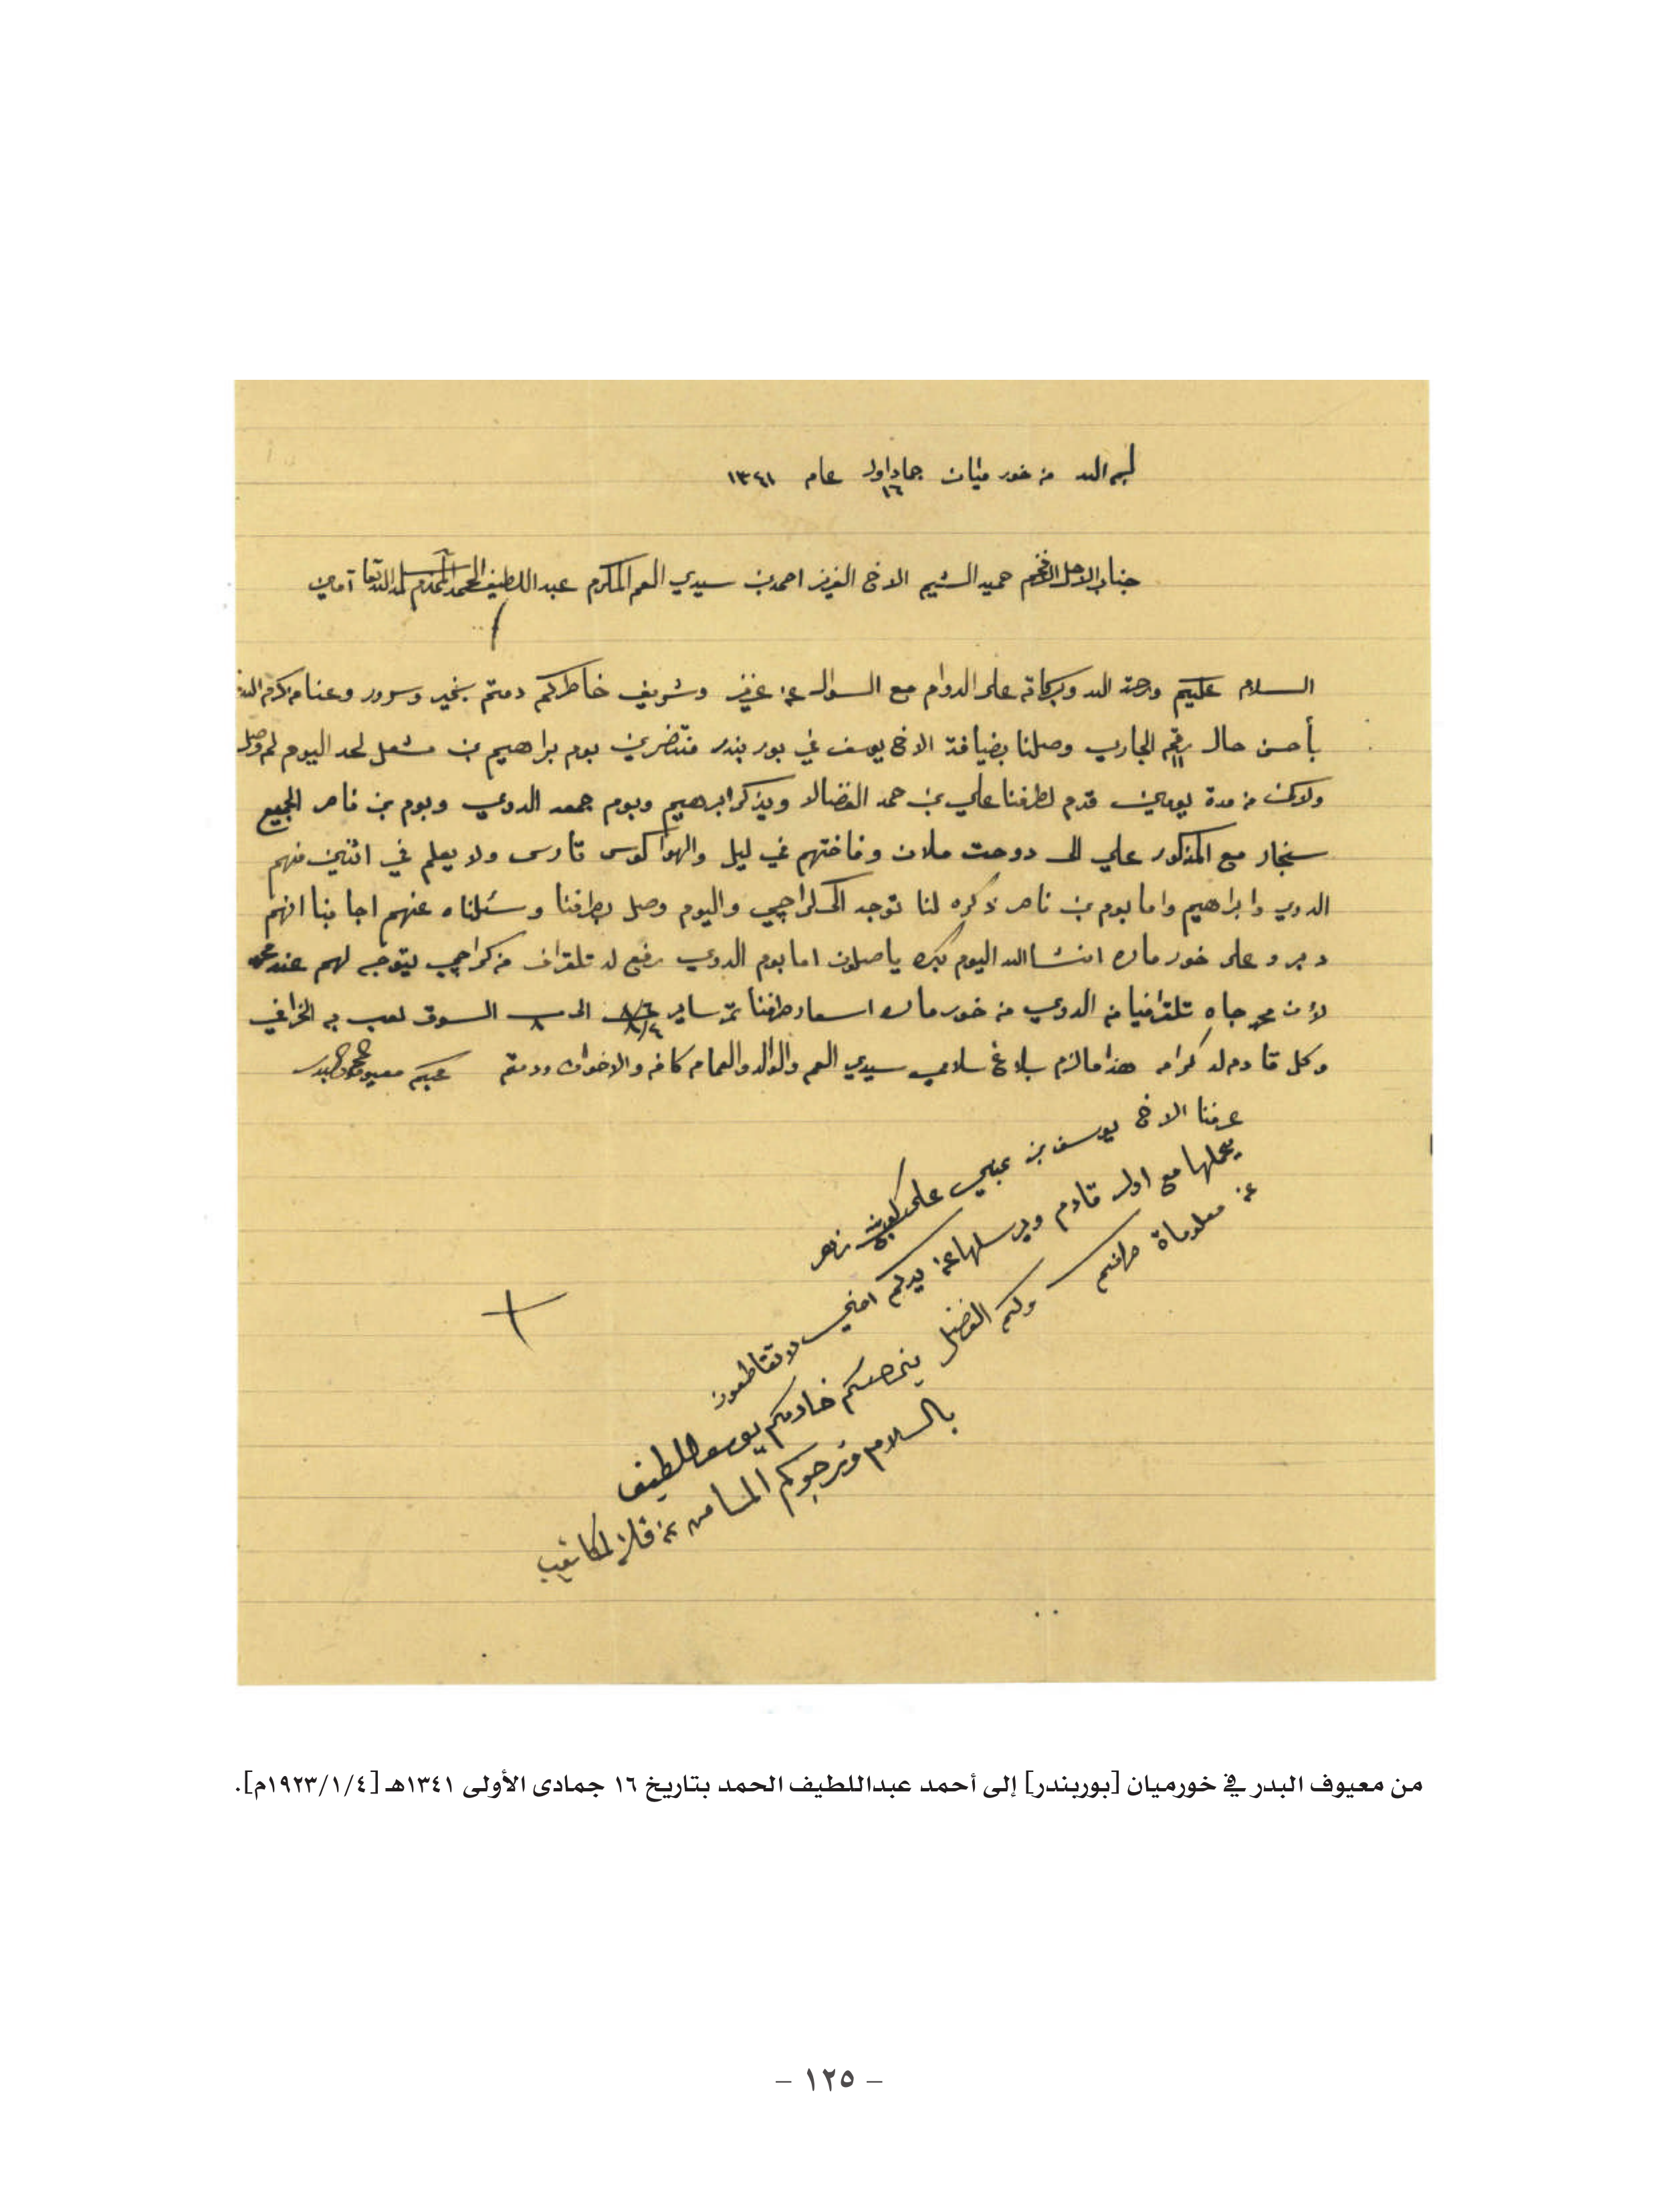 بسم الله من خور ميان جماد اول عام ١٣٤١
١٦
جناب الاجل الافخم حميد الشيم الاخ العزيز احمد بن سيدي العم المكرم عبد اللطيف الحمد المحترم سلمه الله تعا آمين
السلام عليكم ورحمة الله وبركاته على الدوام مع السوال عن عزيز وشريف خاطركم دمتم بخير وسرور وعنا من كرم الله
بأحسن حال رقم ١١ الجاري وصلنا بضيافة الاخ يوسف في بور بندر منتضرين بوم براهيم بن مشعل لحد اليوم لم وصل
ولاكن من مدة يومين قدم لطرفنا علي بن حمد الفضالا ويذكر ابرهيم وبوم جمعه الدوي وبوم بن ناصر الجميع
سنجار مع المذكور علي الى دوحت ملان وفاختهم في ليل والهوا كوس تارس ولا يعلم في اثنين منهم
الدوي وابراهيم واما بوم بن ناصر ذكره لنا توجه الى كراچي واليوم وصل بطرفنا وسئلناه عنهم اجابنا انهم
دبرو على خور ماره انشا الله اليوم بكره ياصلون اما بوم الدوي رفع له تلقراف من كراچي ليتوجه لهم عند
لأن جاه تلقرافيا من الدوي من خور ماره اسعار طرفنا تمر ساير ٨/٦ ٨/٤ الى ٨ السوق لعب به الخرافي
وكل قادم له كرامه هذا مالزم بلاغ سلامي سيدي العم والوالد والعمام كافه والاخوان ودمتم محبكم معيوف البدر
عرفنا الاخ يوسف بن عيسى على زهر
يحملها مع اول قادم ويرسلها عن يدكم اخي لا تقاطعون
عن معلوماة طرفكم ولكم الفضل يخصكم خادمكم يوسف اللطيف
بالسلام ونرجوكم المسامحه عن قلة المكاتيب
من معيوف البدر في خورميان [بوربندر] إلى أحمد عبداللطيف الحمد بتاريخ ١٦ جمادى الأولى ١٣٤١هـ [١٩٢٣/١/٤م].
– ١٢٥ –